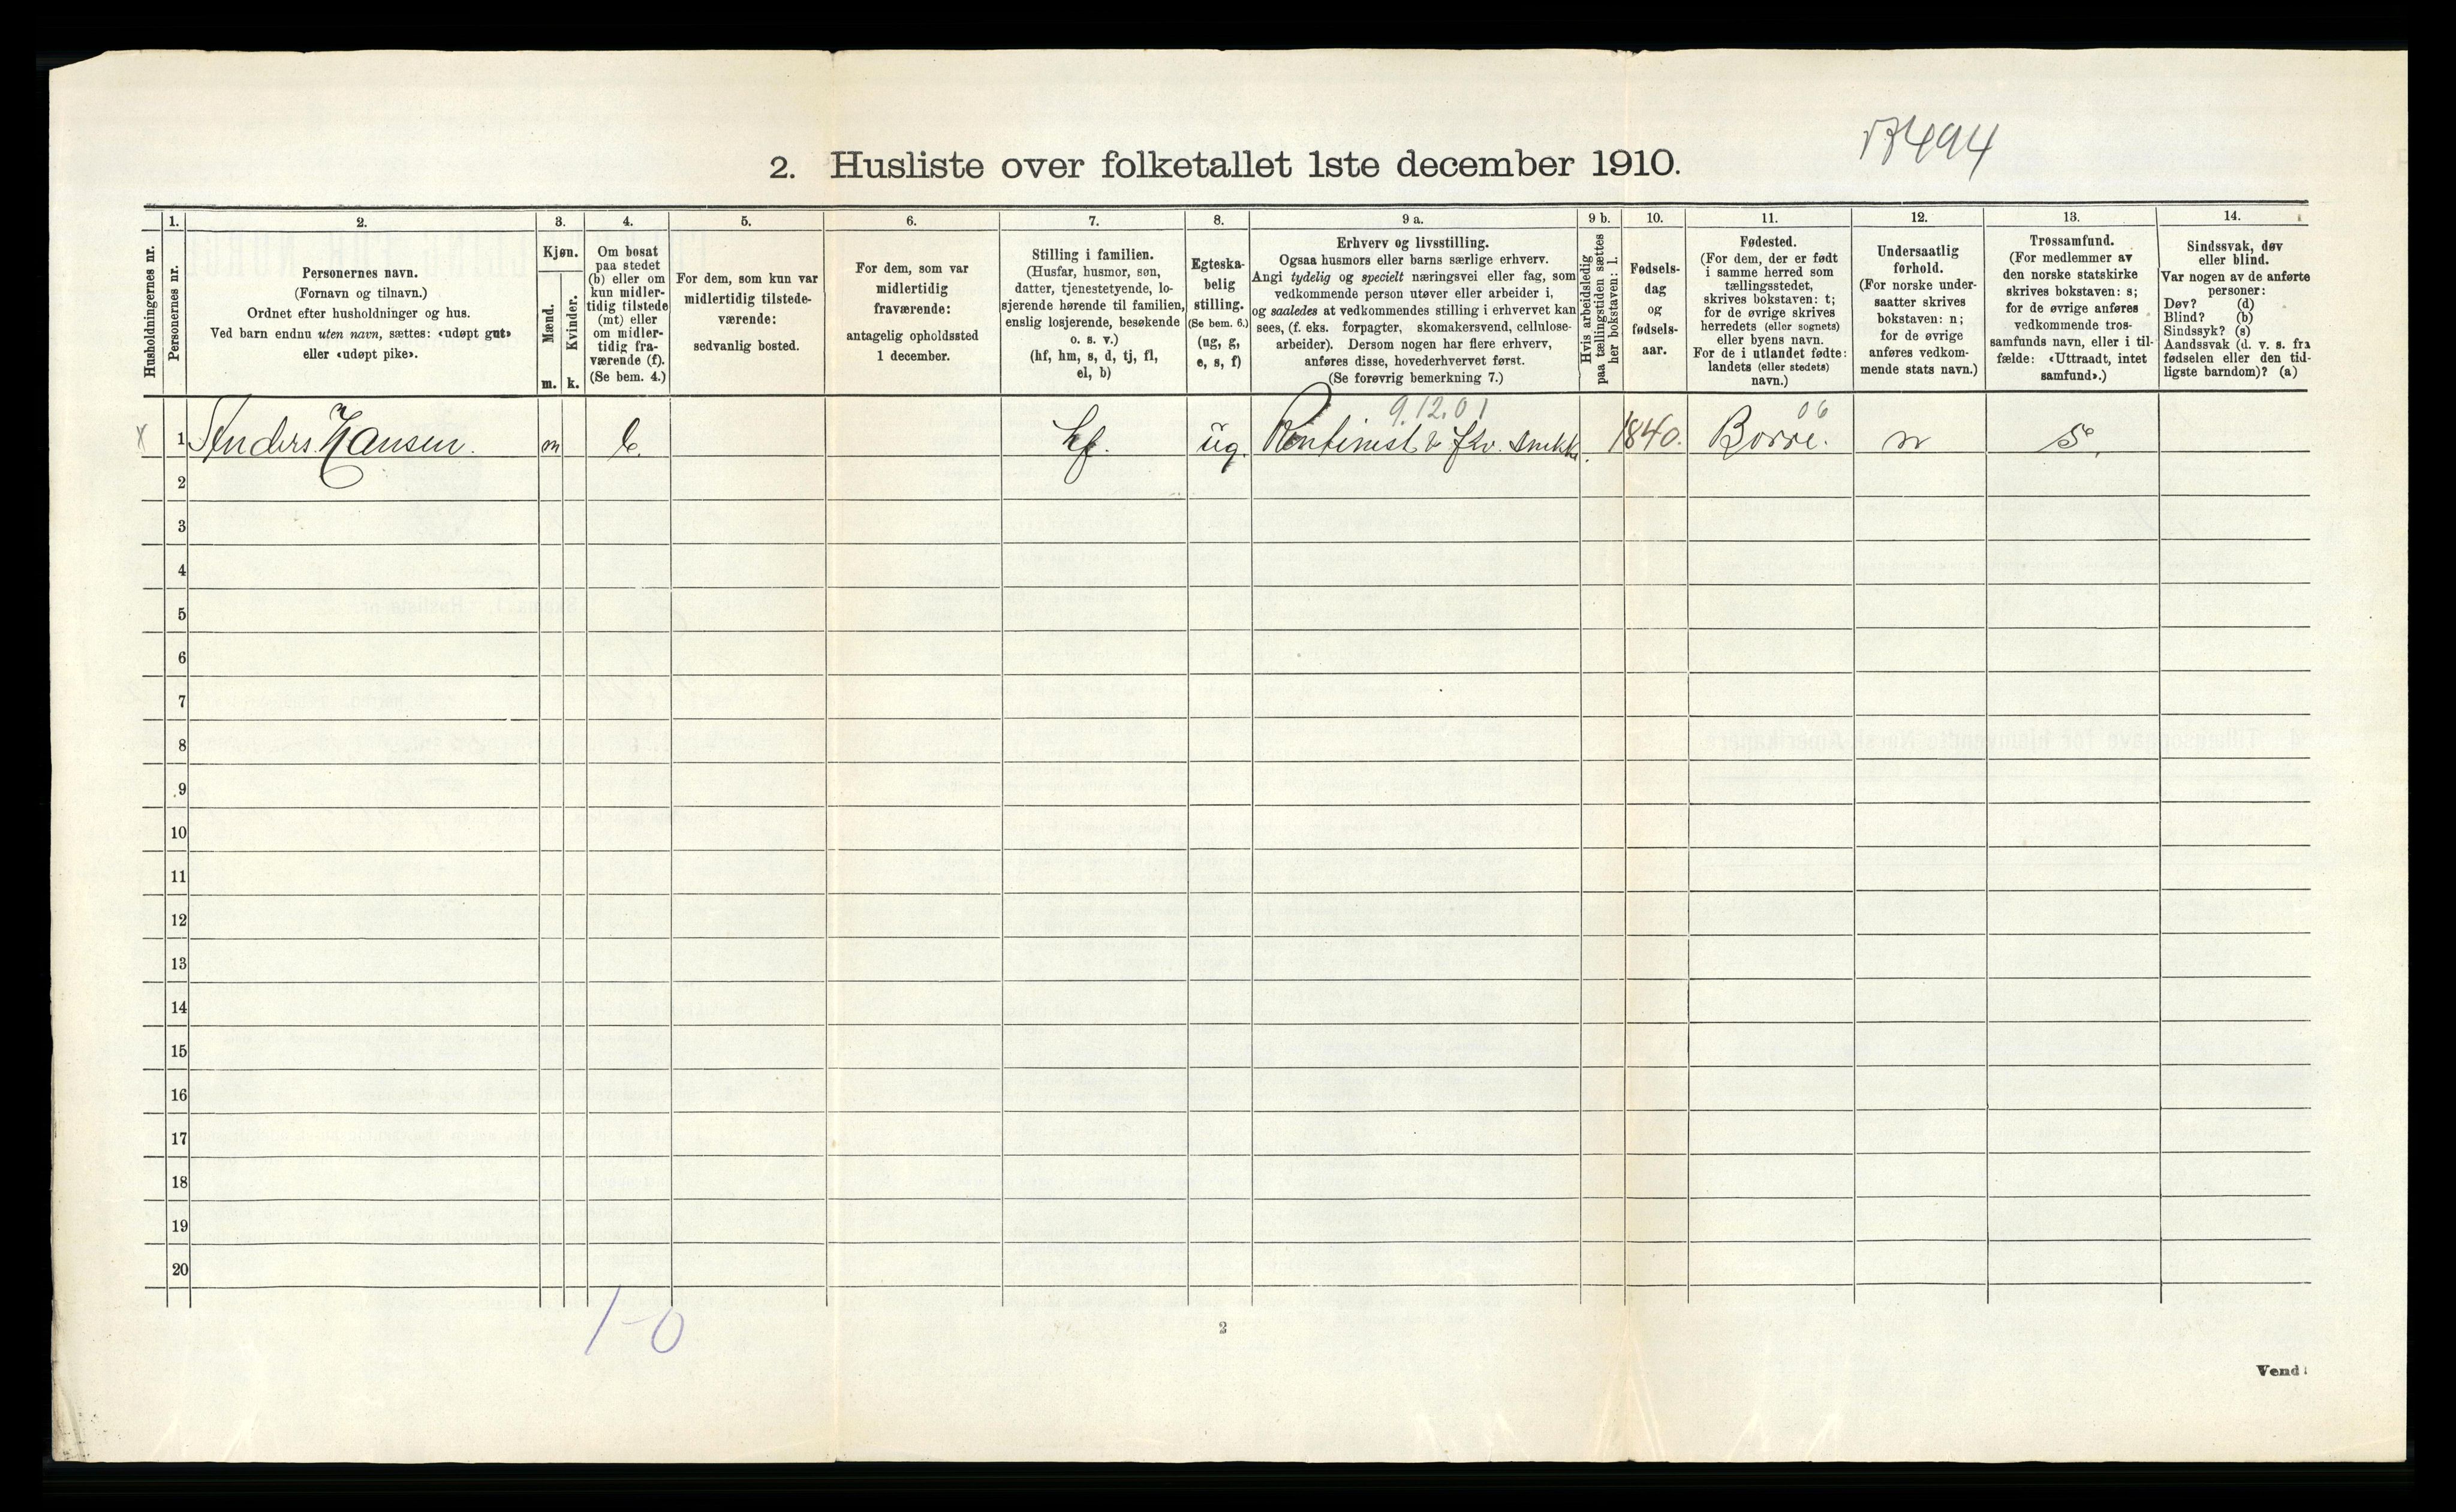 17494
2. Husliste over folketallet 1ste december 1910.
Husholdningernes nr.
1.
Personernes nr.
2.
Personernes navn.
(Fornavn og tilnavn.)
Ordnet efter husholdninger og hus.
Ved barn endnu uten navn, sættes: «udøpt gut»
eller «udøpt pike».
3.
Kjøn.
Mænd.
Kvinder.
m. k.
4.
Om bosat
paa stedet
(b) eller om
kun midler-
tidig tilstede
(mt) eller
om midler-
tidig fra-
værende (f).
(Se bem. 4.)
5.
For dem, som kun var
midlertidig tilstede-
værende:
sedvanlig bosted.
6.
For dem, som var
midlertidig
fraværende:
antagelig opholdssted
1 december.
7.
Stilling i familien.
(Husfar, husmor, søn,
datter, tjenestetyende, lo-
sjerende hørende til familien,
enslig losjerende, besøkende
o. s. v.)
(hf, hm, s, d, tj, fl,
el, b)
8.
Egteska-
belig
stilling.
(Se bem. 6.)
(ug, g,
e, s, f)
9 a.
Erhverv og livsstilling.
Ogsaa husmors eller barns særlige erhverv.
Angi tydelig og specielt næringsvei eller fag, som
vedkommende person utøver eller arbeider i,
og saaledes at vedkommendes stilling i erhvervet kan
sees, (f. eks. forpagter, skomakersvend, cellulose-
arbeider). Dersom nogen har flere erhverv,
anføres disse, hovederhvervet først.
(Se forøvrig bemerkning 7.)
9 b.
Hvis arbeidsledig
paa tællingstiden sættes
her bokstaven: l.
10.
Fødsels-
dag
og
fødsels-
aar.
11.
Fødested.
(For dem, der er født
i samme herred som
tællingsstedet,
skrives bokstaven: t;
for de øvrige skrives
herredets (eller sognets)
eller byens navn.
For de i utlandet fødte:
landets (eller stedets)
navn.)
12.
Undersaatlig
forhold.
(For norske under-
saatter skrives
bokstaven: n;
for de øvrige
anføres vedkom-
mende stats navn.)
13.
Trossamfund.
(For medlemmer av
den norske statskirke
skrives bokstaven: s;
for de øvrige anføres
vedkommende tros-
samfunds navn, eller i til-
fælde: «Uttraadt, intet
samfund».)
14.
Sindssvak, døv
eller blind.
Var nogen av de anførte
personer:
Døv? (d)
Blind? (b)
Sindssyk? (s)
Aandssvak (d. v. s. fra
fødselen eller den tid-
ligste barndom)? (a)
9.12.01 06
x 1 Anders Hansen. m b. hf. ug. & fhv. snekk. 1840. Borre. n s.
2
3
4
5
6
7
8
9
10
11
12
13
14
15
16
17
18
19
20
1-0
2
Vend!